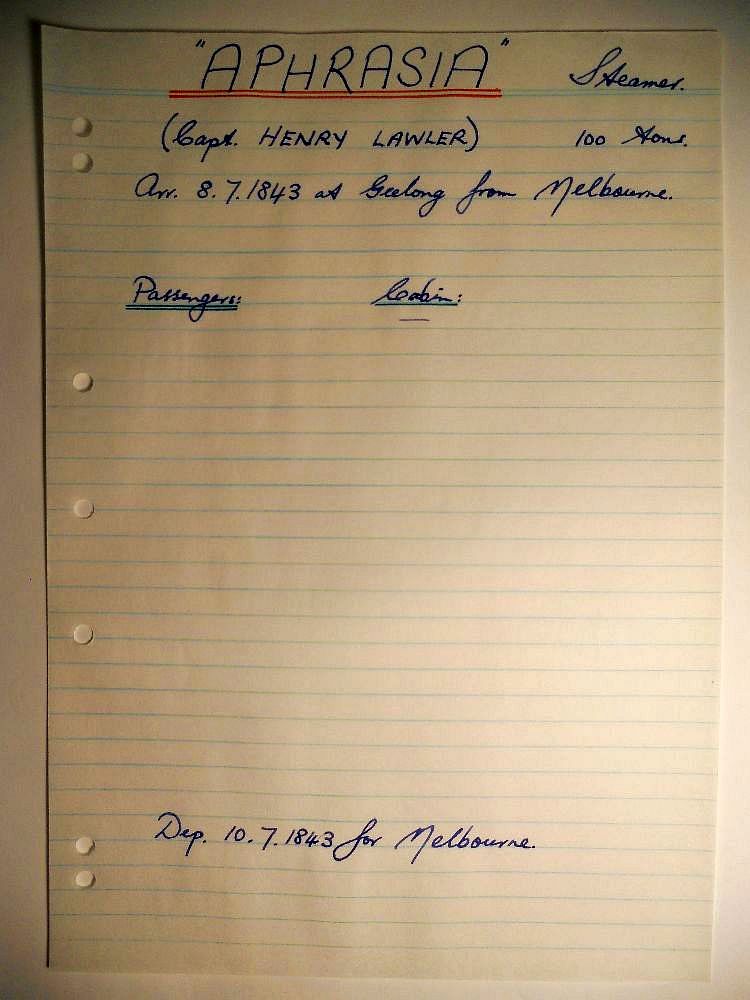 "APHRASIA" Steamer.
(Capt. HENRY LAWLER) 100 Tons.
Arr. 8.7.1843 at Geelong from Melbourne.
Passengers: Cabin:
—
Dep. 10.7.1843 for Melbourne.